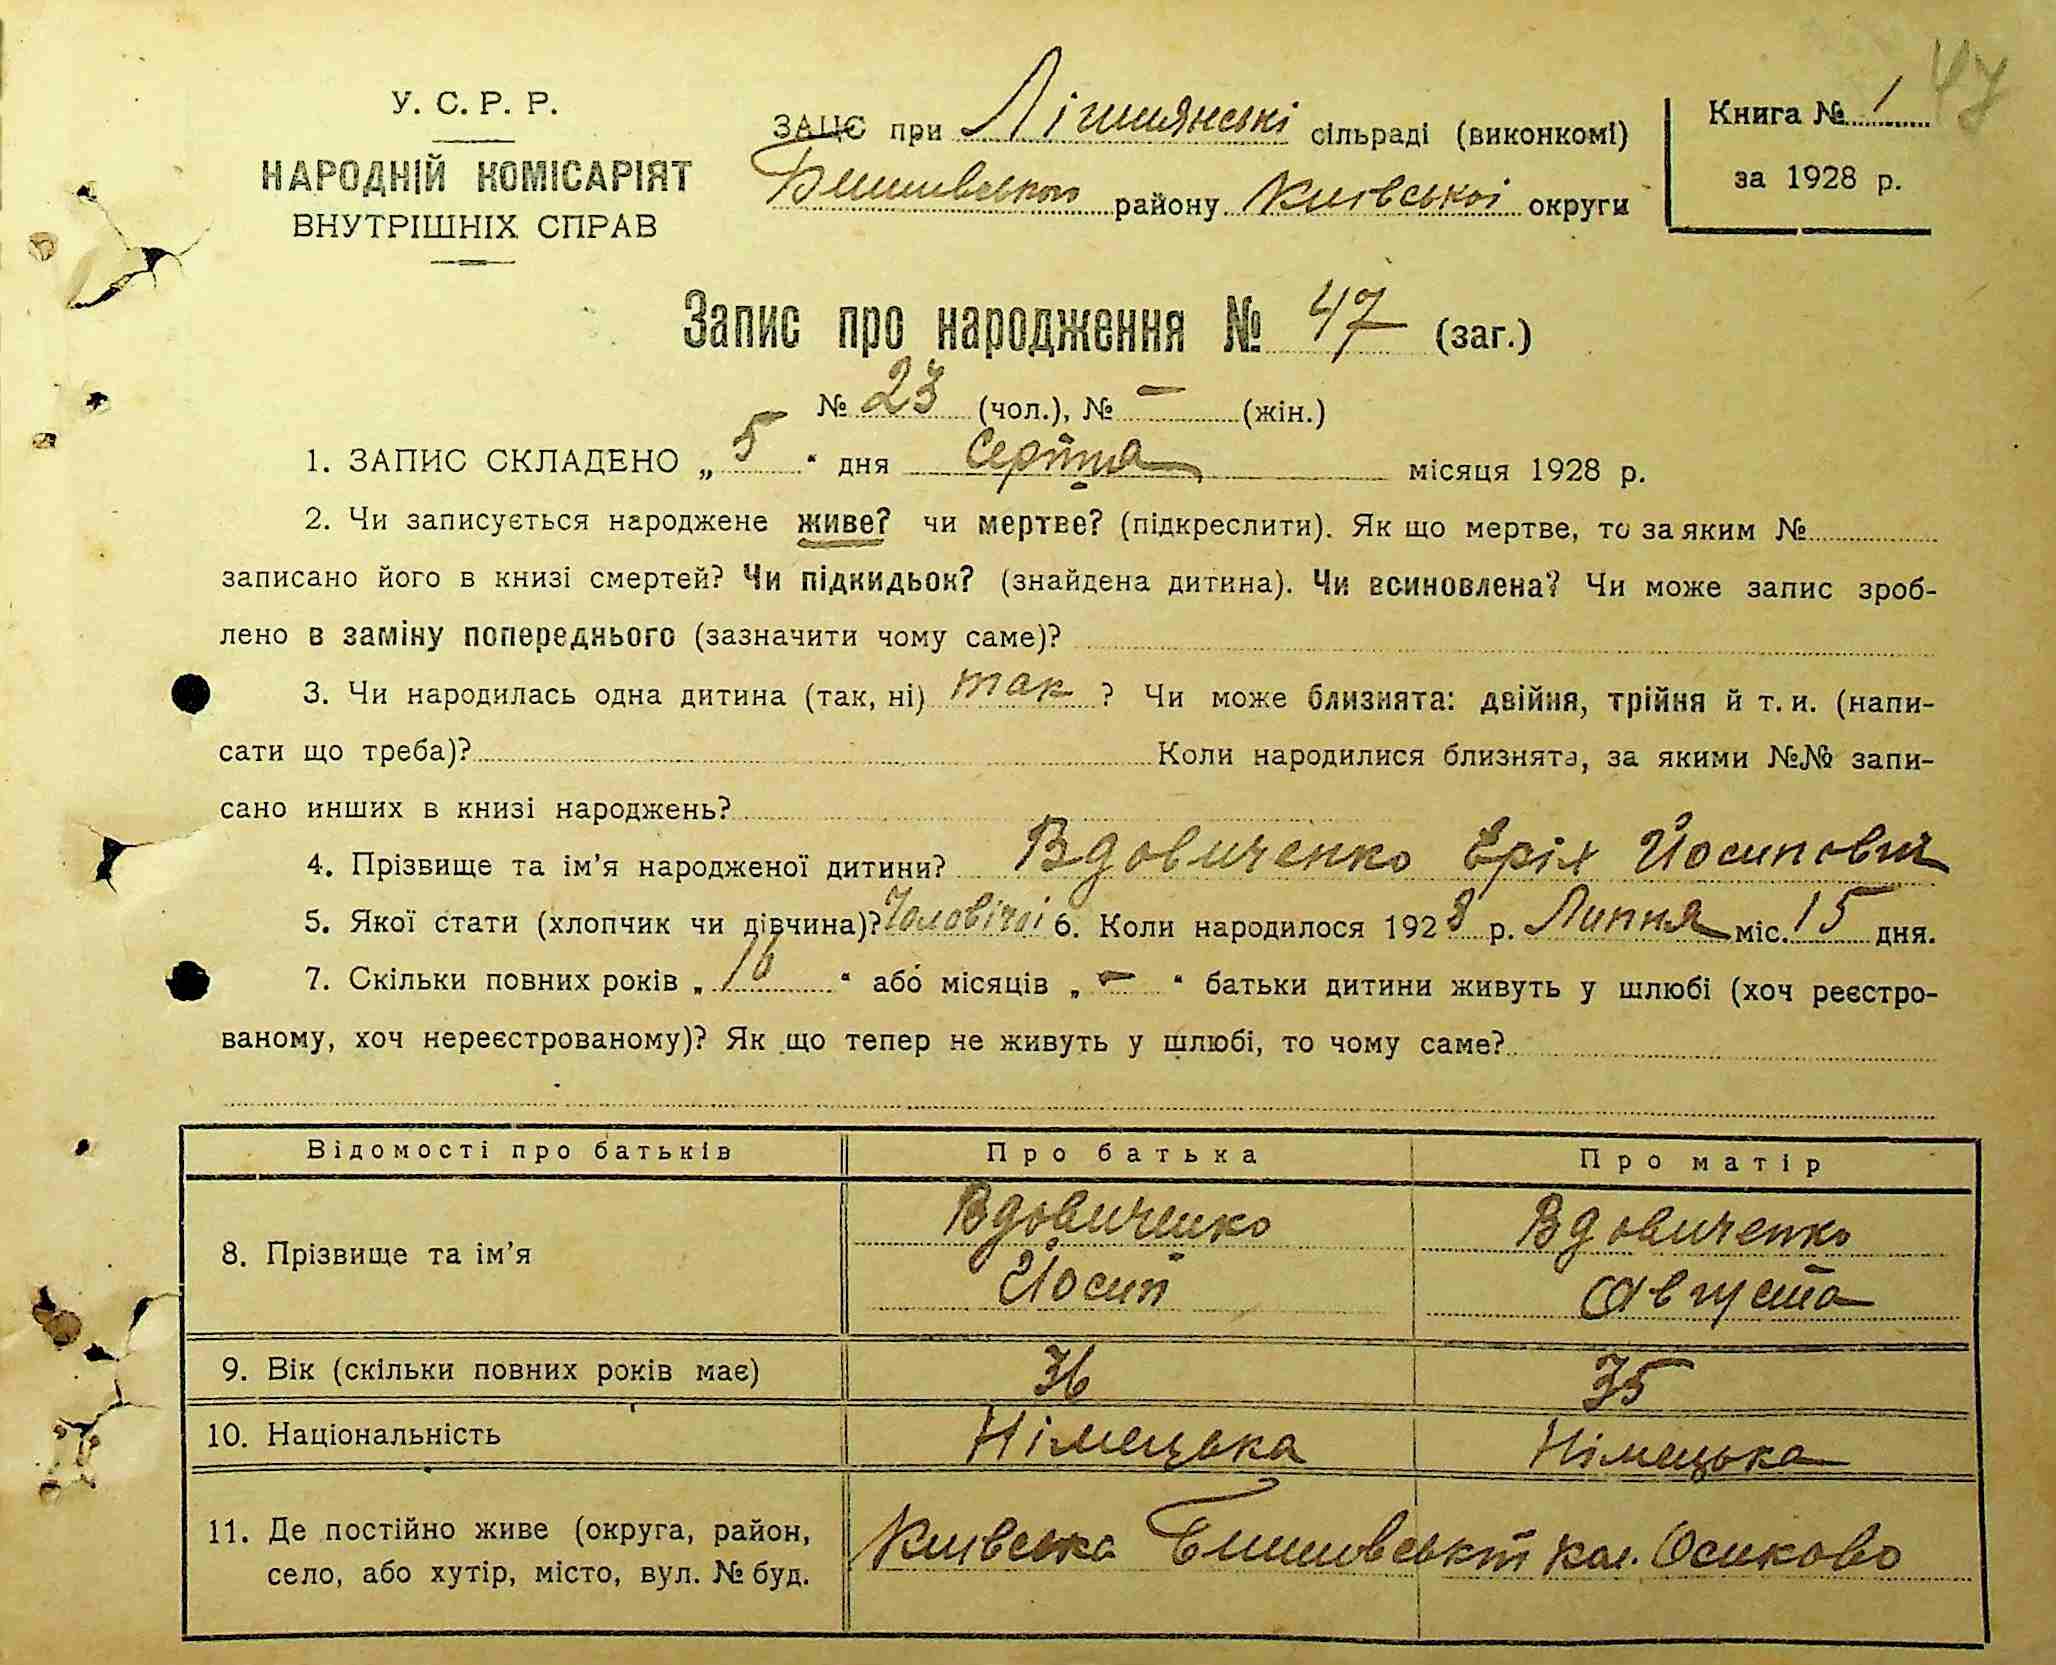 47
У. С. Р. Р.
НАРОДНІЙ КОМІСАРІЯТ
ВНУТРІШНІХ СПРАВ
ЗАЦС при сільраді (виконкомі)
Бишівського району Київської округи
Книга № 1
за 1928 р.
Запис про народження № 47 (заг.)
№ 23 (чол.), № – (жін.)
1. ЗАПИС СКЛАДЕНО „ 5 “ дня Серпня місяця 1928 р.
2. Чи записується народжене живе? чи мертве? (підкреслити). Як що мертве, то за яким №
записано його в книзі смертей? Чи підкидьок? (знайдена дитина). Чи всиновлена? Чи може запис зроб-
лено в заміну попереднього (зазначити чому саме)?
3. Чи народилась одна дитина (так, ні) так ? Чи може близнята: двійня, трійня й т. и. (напи-
сати що треба)? Коли народилися близнята, за якими №№ запи-
сано инших в книзі народжень?
4. Прізвище та ім’я народженої дитини? Вдовиченко Еріх Йосипович
5. Якої стати (хлопчик чи дівчина)? Чоловічої 6. Коли народилося 1928 р. Липня міс. 15 дня.
7. Скільки повних років „ 16 “ або місяців „ – “ батьки дитини живуть у шлюбі (хоч реєстро-
ваному, хоч нереєстрованому)? Як що тепер не живуть у шлюбі, то чому саме?
Відомості про батьків Про батька Про матір
8. Прізвище та ім’я Вдовиченко Йосип Вдовиченко Августа
9. Вік (скільки повних років має) 36 35
10. Національність Німецька Німецька
11. Де постійно живе (округа, район,
село, або хутір, місто, вул. № буд.
Київська Бишовський кол. Осиково